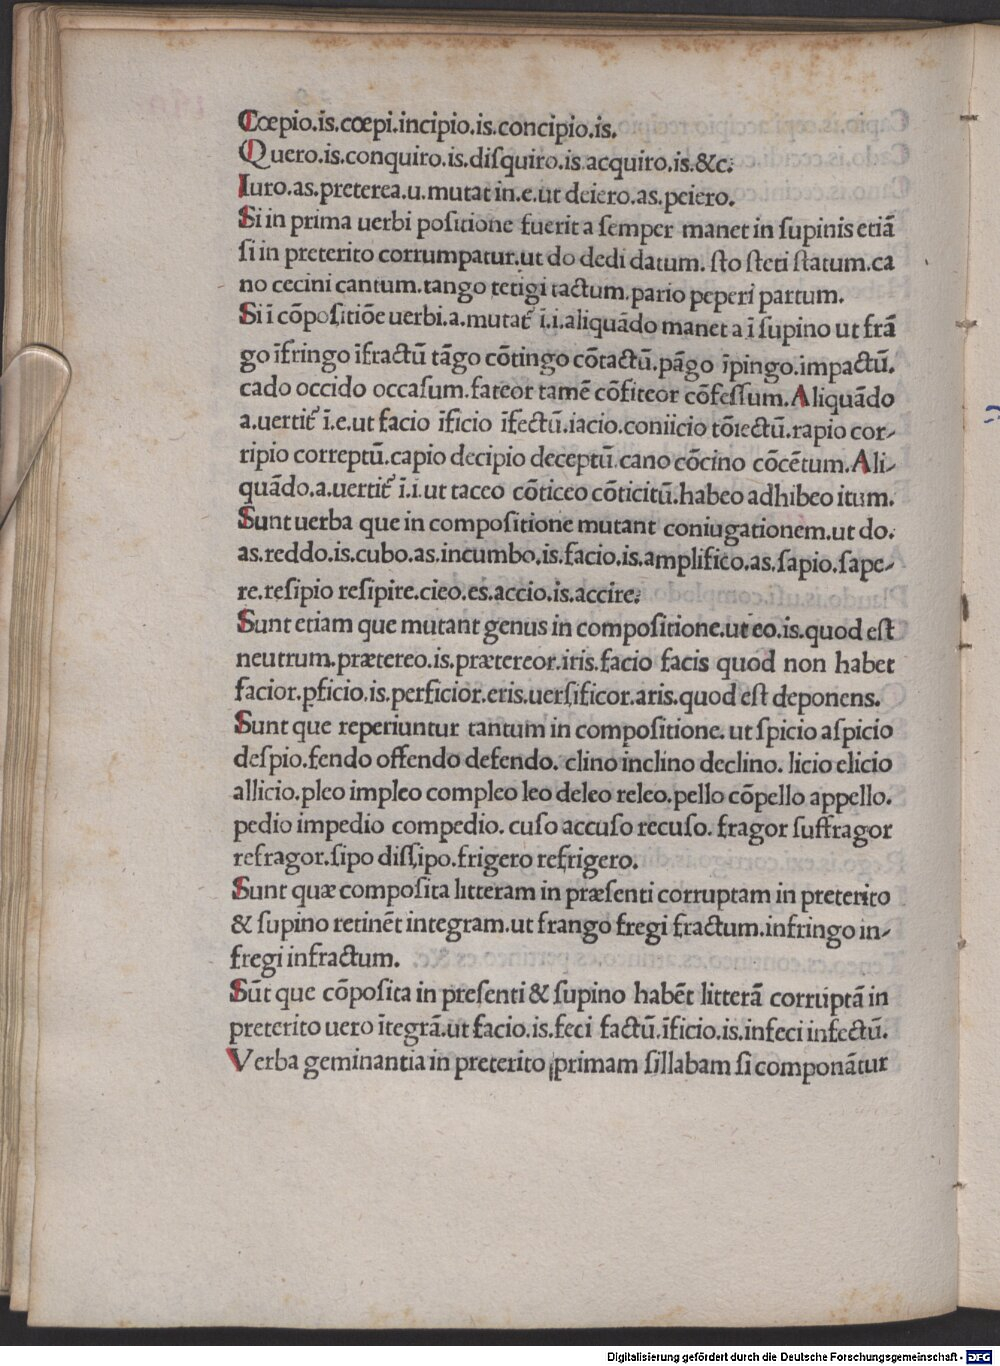 Cœpio.is.cœpi.incipio.is.concipio.is.
Quero.is.conquiro.is.diſquiro.is.acquiro.is.&c.
Iuro.as.preterea.u.mutat in.e.ut deiero.as.peiero.
Si in prima uerbi poſitione fuerit a ſemper manet in ſupinis etiā
ſi in preterito corrumpatur.ut do dedi datum. ſto ſteti ſtatum.ca
no cecini cantum.tango tetigi tactum.pario peperi partum.
Si ī cōpoſitiōe uerbi.a.mutat᷑ ī.i.aliquādo manet a ī ſupino ut frā
go īfringo īfractū tāgo cōtingo cōtactū.pāgo īpingo.impactū.
cado occido occaſum.fateor tamē cōfiteor cōfeſſum.Aliquādo
a.uertit᷑ ī.e.ut facio īficio īfectū.iacio.coniicio tōiectū.rapio cor-
ripio correptū.capio decipio deceptū.cano cōcino cōcētum.Ali-
quādo.a.uertit᷑ ī.i.ut taceo cōticeo cōticitū.habeo adhibeo itum.
Sunt uerba que in compoſitione mutant coniugationem.ut do.
as.reddo.is.cubo.as.incumbo.is.facio.is.amplifico.as.ſapio.ſape-
re.reſipio reſipire.cieo.es.accio.is.accire.
Sunt etiam que mutant genus in compoſitione.ut eo.is.quod eſt
neutrum.prætereo.is.prætereor.iris.facio facis quod non habet
facior.ꝑficio.is.perficior.eris.uerſificor.aris.quod eſt deponens.
Sunt que reperiuntur tantum in compoſitione. ut ſpicio aſpicio
deſpio.fendo offendo defendo. clino inclino declino. licio elicio
allicio.pleo impleo compleo leo deleo releo.pello cōpello appello.
pedio impedio compedio. cuſo accuſo recuſo. fragor ſuffragor
refragor.ſipo diſſipo.frigero refrigero.
Sunt quæ compoſita litteram in præſenti corruptam in preterito
& ſupino retinēt integram.ut frango fregi fractum.infringo in-
fregi infractum.
Sūt que cōpoſita in preſenti & ſupino habēt litterā corruptā in
preterito uero ītegrā.ut facio.is.feci factū.īficio.is.infeci infectū.
Verba geminantia in preterito primam ſillabam ſi componātur
Digitalisierung gefördert durch die Deutsche Forschungsgemeinschaft - DFG